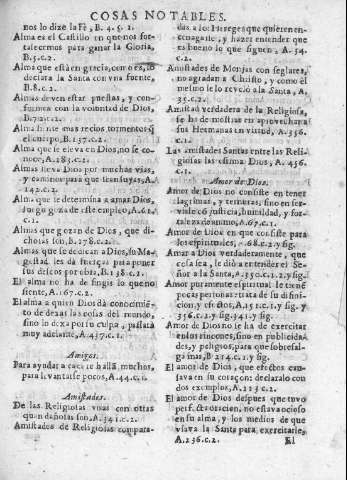 COSAS NOTABLES.
nos lo dize la Fè, B. 4. 5. 2.
Alma es el Castillo en que nos fortalecemos
para ganar la Gloria,
B. 5. c. 2.
Alma que està en gracia, como es, lo
declara la Santa con vna fuente,
B. 8. c. 2.
Almas deven estar puestas, y conformes
con la voluntad de Dios,
Alma siente mas recios tormentos q̃
el cuerpo, B. 137. c. 2.
Alma que se eleva en Dios, no le conoce,
A. 183. c. 1.
Almas lleva Dios por muchas vias,
y caminos para que sean suyas, A.
142. c. 2.
Alma que se determina a amar Dios,
c. 1.
Almas que gozan de Dios, que dichosas
son, B. 178. c. 2.
Almas que se dedican a Dios, su Magestad
les dà fuerças para poner
sus deseos por obra, B. 138. c. 2.
El alma no ha de fingir lo que no
siente, A. 167. c. 2.
El alma a quien Dios dà conocimiẽto
de dexar las cosas del mundo,
sino lo dexa por su culpa, passarà
muy adelante, A. 437. c. 1.
Amigos.
Para ayudar a caer se hallã muchos,
para levantarse pocos, A. 44. c. 1.
Amistades.
De las Religiosas vnas con otras
quan dañosas son, A. 341. c. 2.
Amistades de Religiosas compara-
das a los Hereges que quieren en
engañarse, y hazer entender que
es bueno lo que siguen, A. 34.
c. 2.
Amistades de Monjas con seglares,
no agradan a Christo, y como èl
mesmo se lo revelò a la Santa, A.
33. c. 2.
Amistad verdadera de la Religiosa,
se ha de mostrar en aprovechar a
sus Hermanas en virtud, A. 336.
c. 1.
Las amistades Santas entre las Religiosas
las estima Dios, A. 436.
c. 1.
Amor de Dios.
Amor de Dios no consiste en tener
lagrimas, y ternuras, sino en servirle
cõ justicia, humildad, y fortaleza
de animo, A. 67. c. 1.
Amor de Dios en que consiste para
los espirituales, A. 68. c. 2. y sig.
Amar a Dios verdaderamente, que
cosa sea, lo diò a entender el Señor
a la Santa, A. 350. c. 1. 2. y sig.
Amor puramente espiritual le tienẽ
pocas personas: trata de su difinicion,
y efectos, A. 15. c. 1. y sig. y
336. c. 1. y sig. 341. y sig.
Amor de Dios no se ha de exercitar
en los rincones, sino en publicidades,
y peligros, para que sobresalga
mas, B. 214. c. 1. y sig.
El amor de Dios, que efectos causava
en su coraçon: declaralo con
dos exemplos, A. 213. c. 2.
El amor de Dios despues que tuvo
perfecto oracion, no estava ocioso
en su alma, y los medios de que
vsava la Santa para exercitarle,
A. 236. c. 2.
El